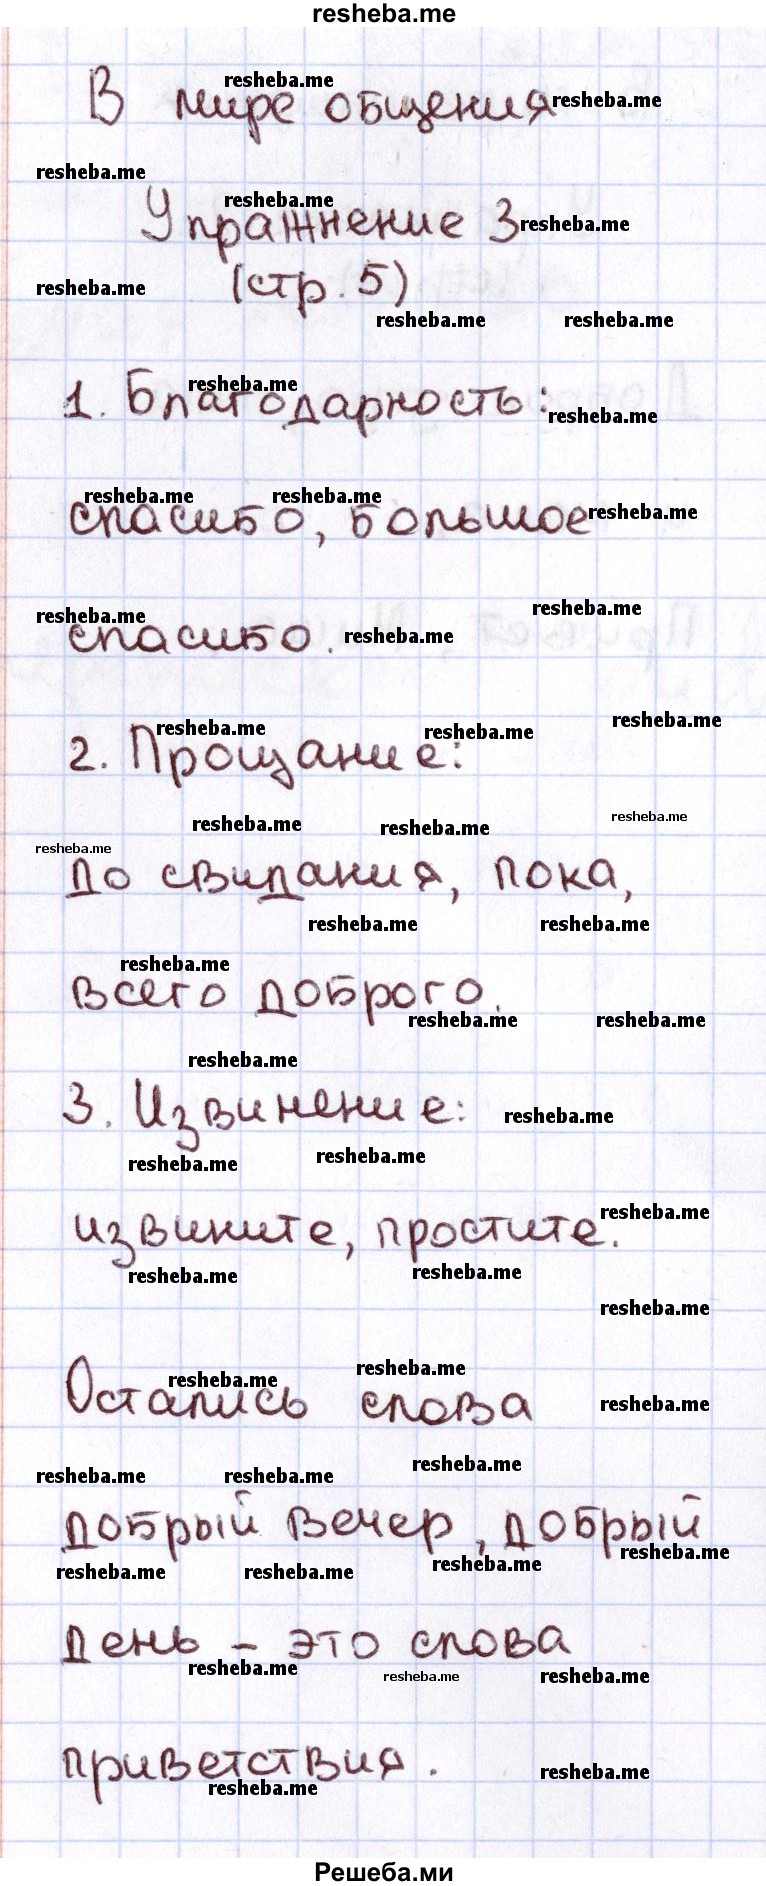 resheba.me
В мире общения
Упражнение 3
(стр. 5)
1. Благодарность:
спасибо, большое
спасибо.
2. Прощание:
до свидания, пока,
всего доброго.
3. Извинение:
извините, простите.
Остались слова
добрый вечер, добрый
день – это слова
приветствия.
Решеба.ми